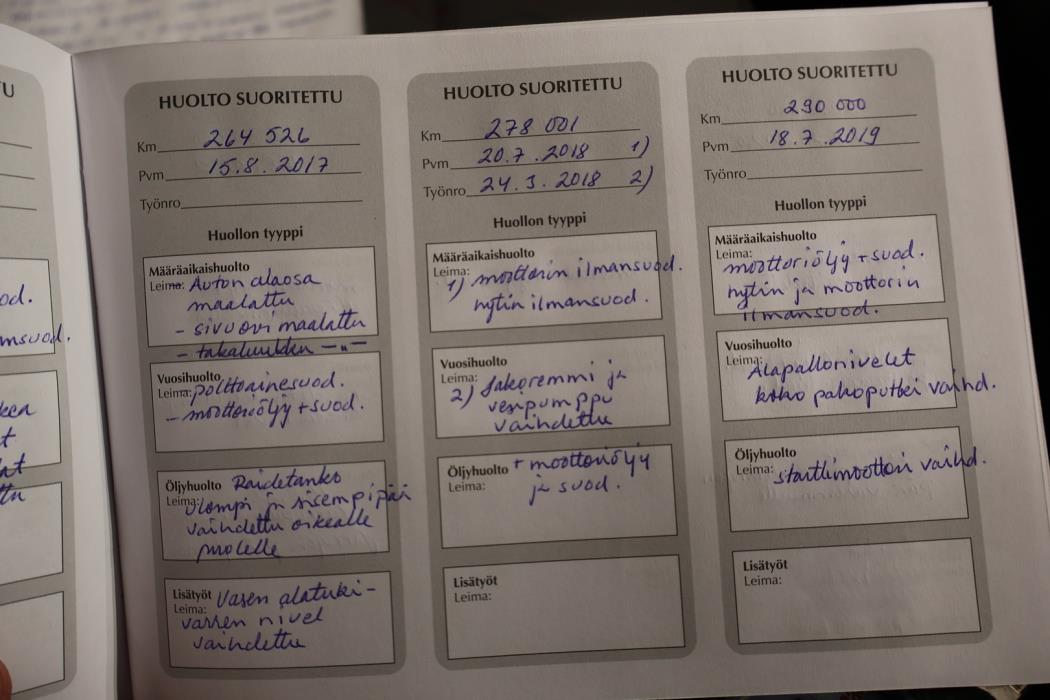 U
od.
msuod.
t
HUOLTO SUORITETTU
Km 264 526
Pvm 15.8.2017
Työnro
Huollon tyyppi
Määräaikaishuolto
Leima: Auton alaosa
maalattu
- sivuovi maalattu
- takaluukku —"—
Vuosihuolto
Leima: polttoainesuod.
- moottoriöljy + suod.
Öljyhuolto Raidetanko
Leima: Ulompi ja sisempi pää
vaihdettu oikealle
puolelle
Lisätyöt Vasen alatuki-
Leima:
varren nivel
vaihdettu
HUOLTO SUORITETTU
Km 278 001
Pvm 20.7.2018 1)
Työnro 24.3.2018 2)
Huollon tyyppi
Määräaikaishuolto
Leima: 1) moottorin ilmansuod.
hytin ilmansuod.
Vuosihuolto
Leima: 2) Jakoremmi ja
vesipumppu
vaihdettu
Öljyhuolto + moottoriöljy
Leima: ja suod.
Lisätyöt
Leima:
HUOLTO SUORITETTU
Km 290 000
Pvm 18.7.2019
Työnro
Huollon tyyppi
Määräaikaishuolto
Leima: moottoriöljy + suod.
hytin ja moottorin
ilmansuod.
Vuosihuolto
Leima: Alapallonivelet
koko pakoputki vaihd.
Öljyhuolto
Leima: starttimoottori vaihd.
Lisätyöt
Leima: